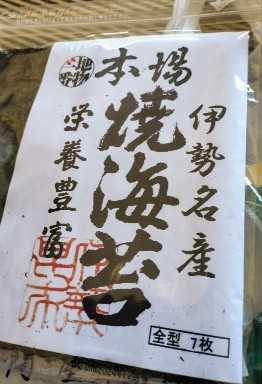 本場
伊勢名産
焼海苔
栄養豊富
全型 7枚